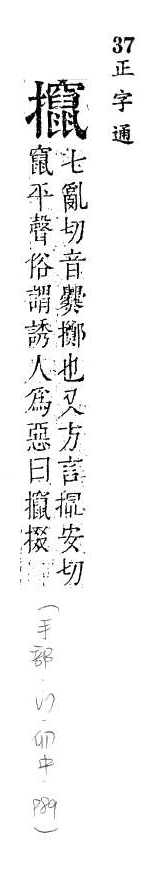 37正字通
攛
七亂切音爨擲也又方言攛安切
竄平聲俗謂誘人為惡曰攛掇
(手部.
卯中.
P89)